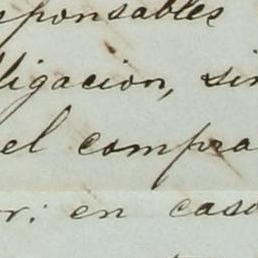 sponsables
ligacion, sin
el compra
or: en caso